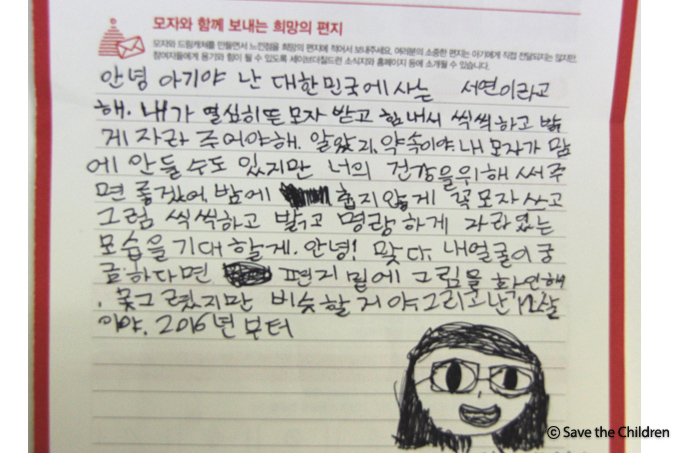 모자와 함께 보내는 희망의 편지
모자와 드림캐쳐를 만들면서 느낀점을 희망의 편지에 적어서 보내주세요. 여러분의 소중한 편지는 아기에게 직접 전달되지는 않지만
참여자들에게 용기와 힘이 될 수 있도록 세이브더칠드런 소식지와 홈페이지 등에 소개될 수 있습니다.
안녕 아기야 난 대한민국에 사는 서연이라고
해. 내가 열심히 뜬 모자 받고 힘내서 씩씩하고 밝
게 자라 주어야해. 알았지, 약속이야 내 모자가 맘
에 안들 수도 있지만 너의 건강을 위해 써주
면 좋겠어, 밤에 춥지 않게 꼭 모자 쓰고
그럼 씩씩하고 밝고 명랑 하게 자라있는
모습을 기대 할게. 안녕! 맞다. 내얼굴이 궁
금하다면, 편지 밑에 그림을 확인해
. 못그렸지만 비슷할 거야. 그리고 난 12살
이야. 2016년 부터
© Save the Children